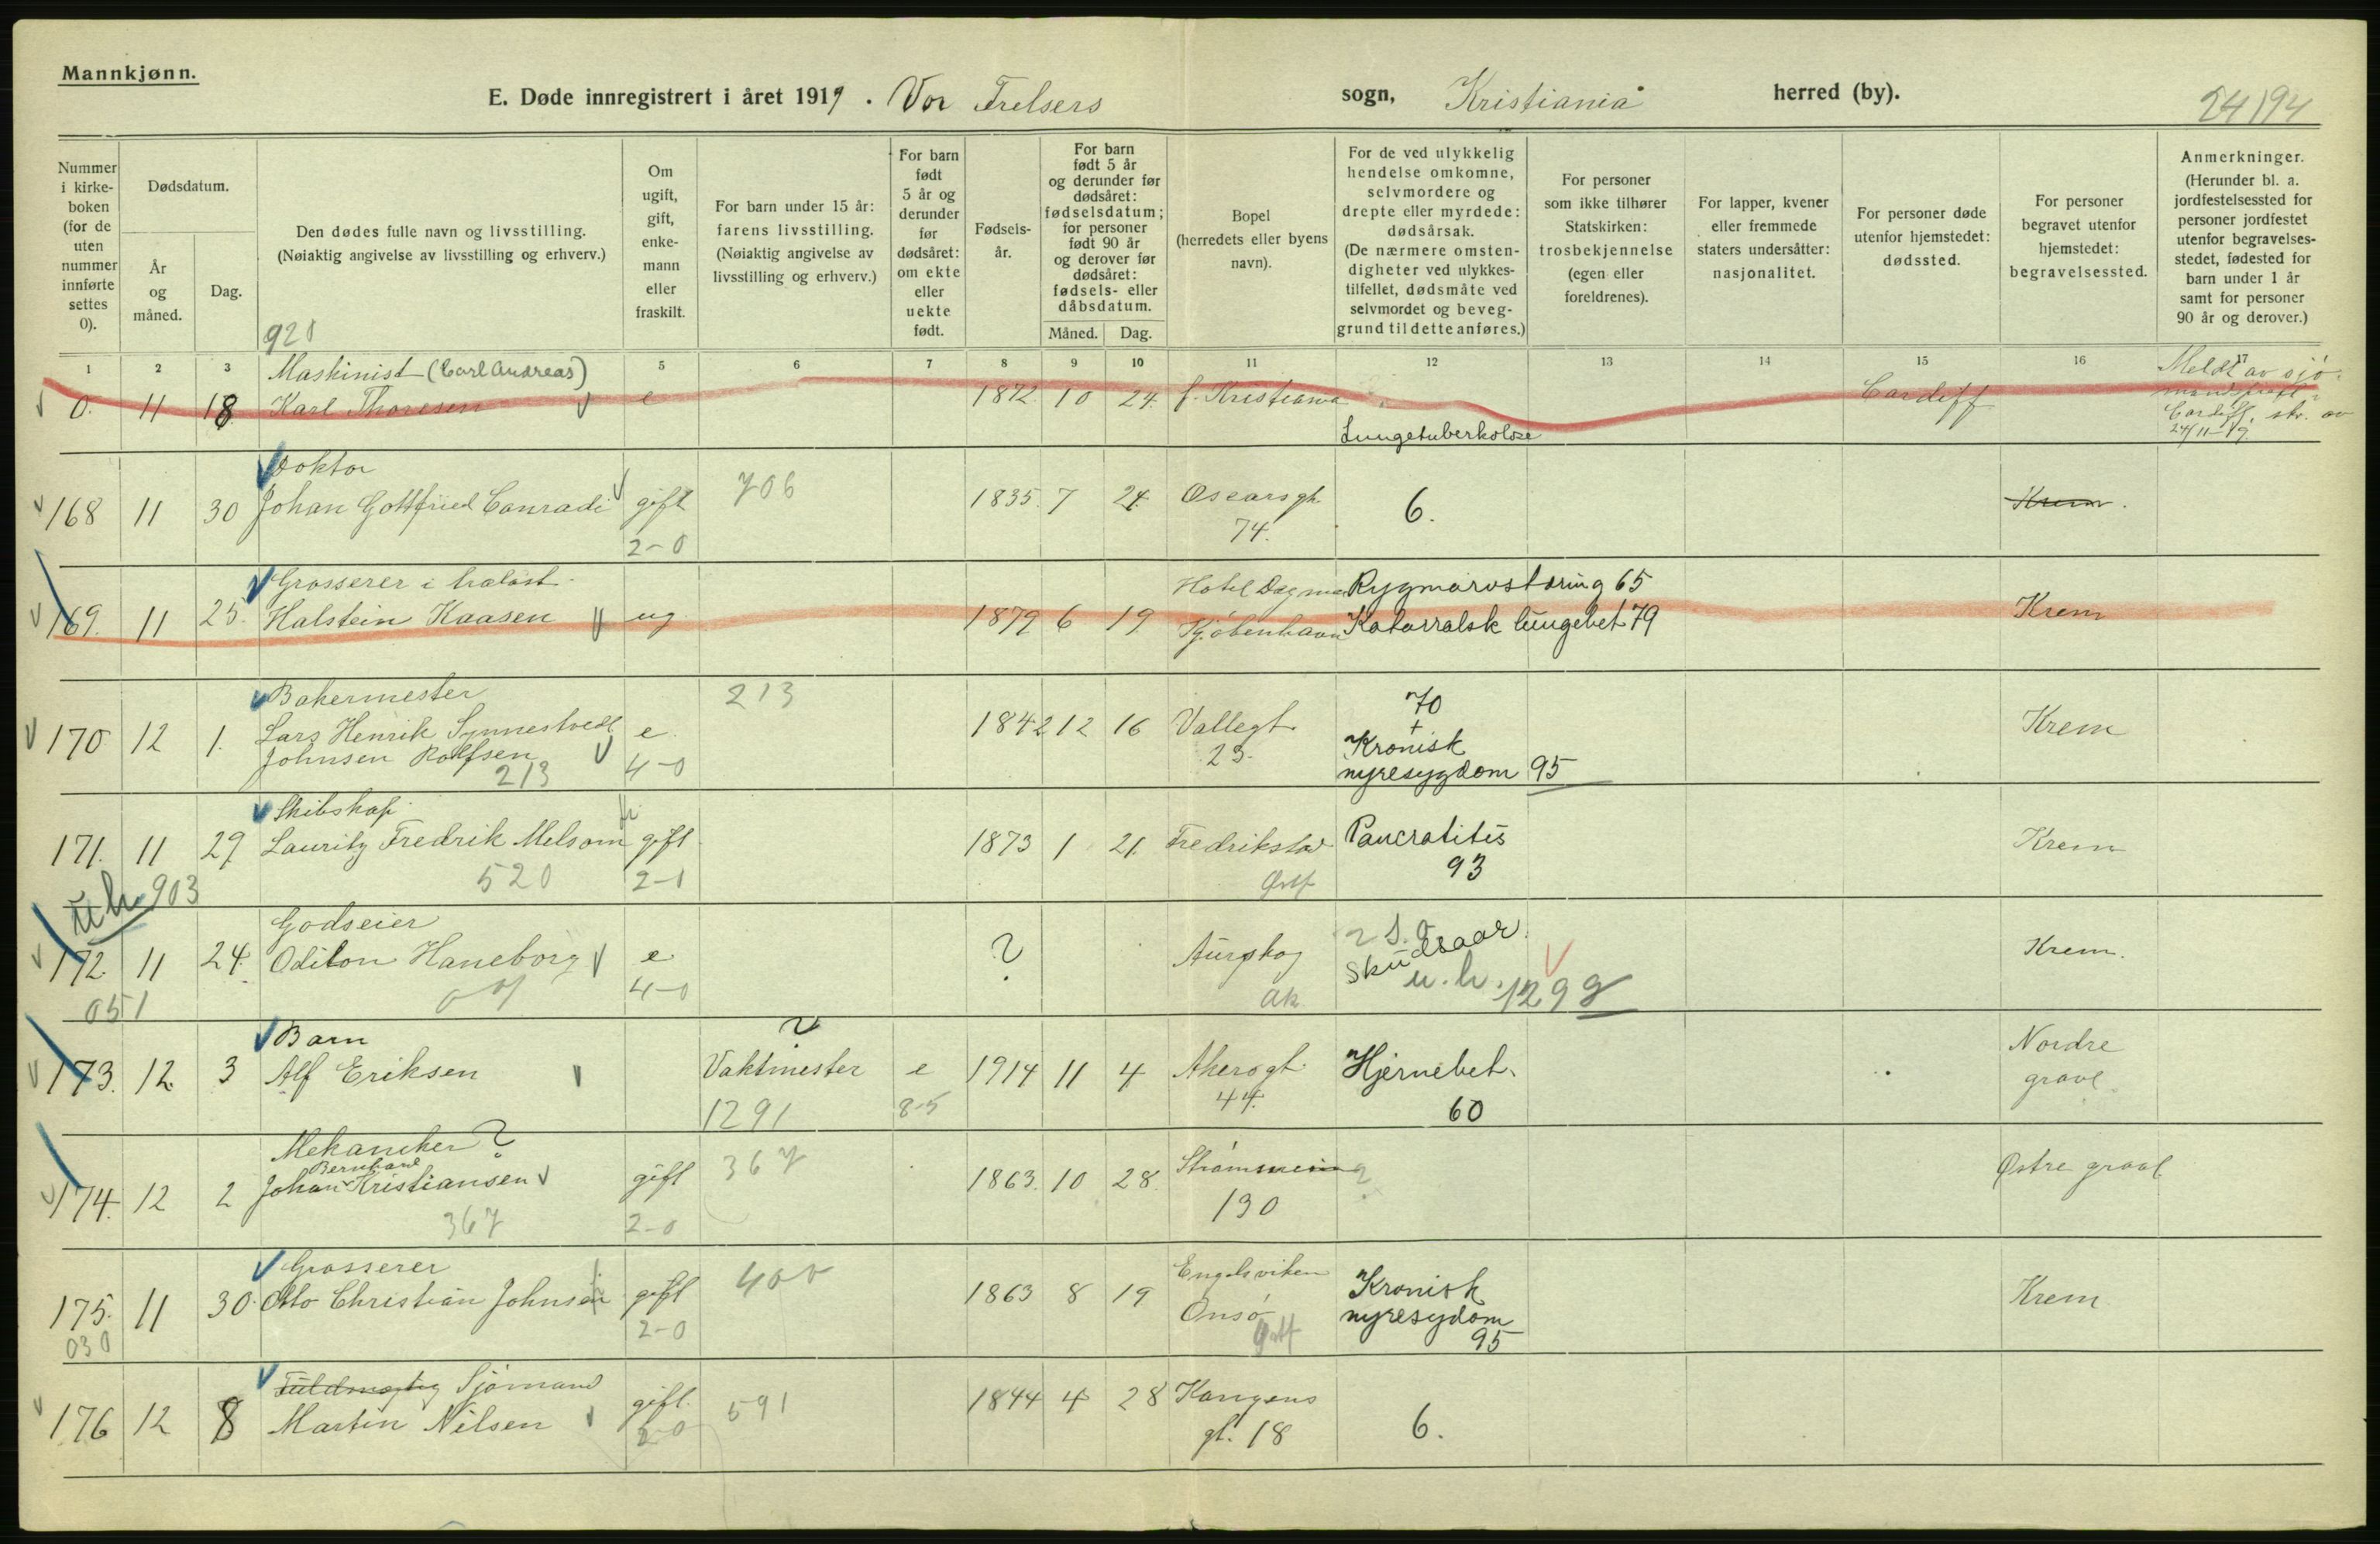 Mannkjønn.
E. Døde innregistrert i året 1919. Vor Frelsers sogn, Kristiania herred (by).
24/94
Nummer i kirke-boken (for de uten nummer innførte settes 0).
Dødsdatum.
År og måned.
Dag.
Den dødes fulle navn og livsstilling.
(Nøiaktig angivelse av livsstilling og erhverv.)
920
Om ugift, gift, enke-mann eller fraskilt.
For barn under 15 år: farens livsstilling.
(Nøiaktig angivelse av livsstilling og erhverv.)
For barn født 5 år og derunder før dødsåret: om ekte eller uekte født.
Fødsels-år.
For barn født 5 år og derunder før dødsåret: fødselsdatum; for personer født 90 år og derover før dødsåret: fødsels- eller dåbsdatum.
Måned. Dag.
Bopel (herredets eller byens navn).
For de ved ulykkelig hendelse omkomne, selvmordere og drepte eller myrdede: dødsårsak.
(De nærmere omsten-digheter ved ulykkes-tilfellet, dødsmåte ved selvmordet og beveg-grund til dette anføres.)
For personer som ikke tilhører Statskirken: trosbekjennelse (egen eller foreldrenes).
For lapper, kvener eller fremmede staters undersåtter: nasjonalitet.
For personer døde utenfor hjemstedet: dødssted.
For personer begravet utenfor hjemstedet: begravelsessted.
Anmerkninger.
(Herunder bl. a. jordfestelsessted for personer jordfestet utenfor begravelses-stedet, fødested for barn under 1 år samt for personer 90 år og derover.)
1 2 3 5 6 7 8 9 10 11 12 13 14 15 16 17
Maskinist (Carl Andreas)
0. 11 18 Karl Thoresen e 1872 10 24. f. Kristiania Cardiff
Lungetuberkolose
Meldt av sjø-
Cardiff, skr. av
24/11-19.
Doktor
168 11 30 Johan Gottfried Conradi gift 706 1835. 7 24. Oscarsgt. 74. 6. Krem.
2-0
Grosserer i trælast
169. 11 25. Halstein Kaasen ug 1879 6 19 Hotel Dagmar Kjøbenhavn Rygmarvstæring 65 Katarralsk lungebet 79 Krem
Bakermester 213
170 12 1. Lars Henrik Synnestvedt e. 1842 12 16 Vallegt. 23. 70 + Kronisk nyresygdom 95 Krem
Johnsen Rolfsen
213 4-0
Skibskap.
171. 11 29 Lauritz Fredrik Melsom gift 1873 1 21. Fredrikstad Pancratitis 93 Krem
520 2-1 Østf
u.h. 903
Godseier
172. 11 24. Odilon Haneborg e ? Aurskog Skudsaar. u.h. 129 Krem.
051 4-0 Ak.
Barn
173. 12. 3 Alf Eriksen Vaktmester ? e 1914 11 4 Akersgt. 44. Hjernebet. 60 Nordre gravl.
1291 8-5
Mekaniker ?
Bernhard
174. 12 2 Johan Kristiansen gift 367 1863. 10 28. Strømmen 130 ? Østre gravl
367 2-0
Grosserer
175. 11 30. Otto Christian Johnsen gift 400 1863 8 19 Engelsviken Onsø Østf Kronisk nyresydom 95 Krem
030 2-0
Fuldmægtig Sjømand
176 12 8 Martin Nilsen gift. 591 1844 4 28 Kongens gt. 18 6.
2-0